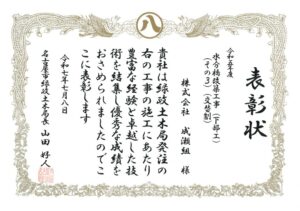 表彰状
令和五年度
水分橋改築工事(下部工)
(その3)(交替制)
株式会社 成瀬組 様
貴社は緑政土木局発注の
右の工事の施工にあたり
豊富な経験と卓越した技
術を結集し優秀な成績を
おさめられましたのでこ
こに表彰します
令和七年七月八日
名古屋市緑政土木局長 山田 好人